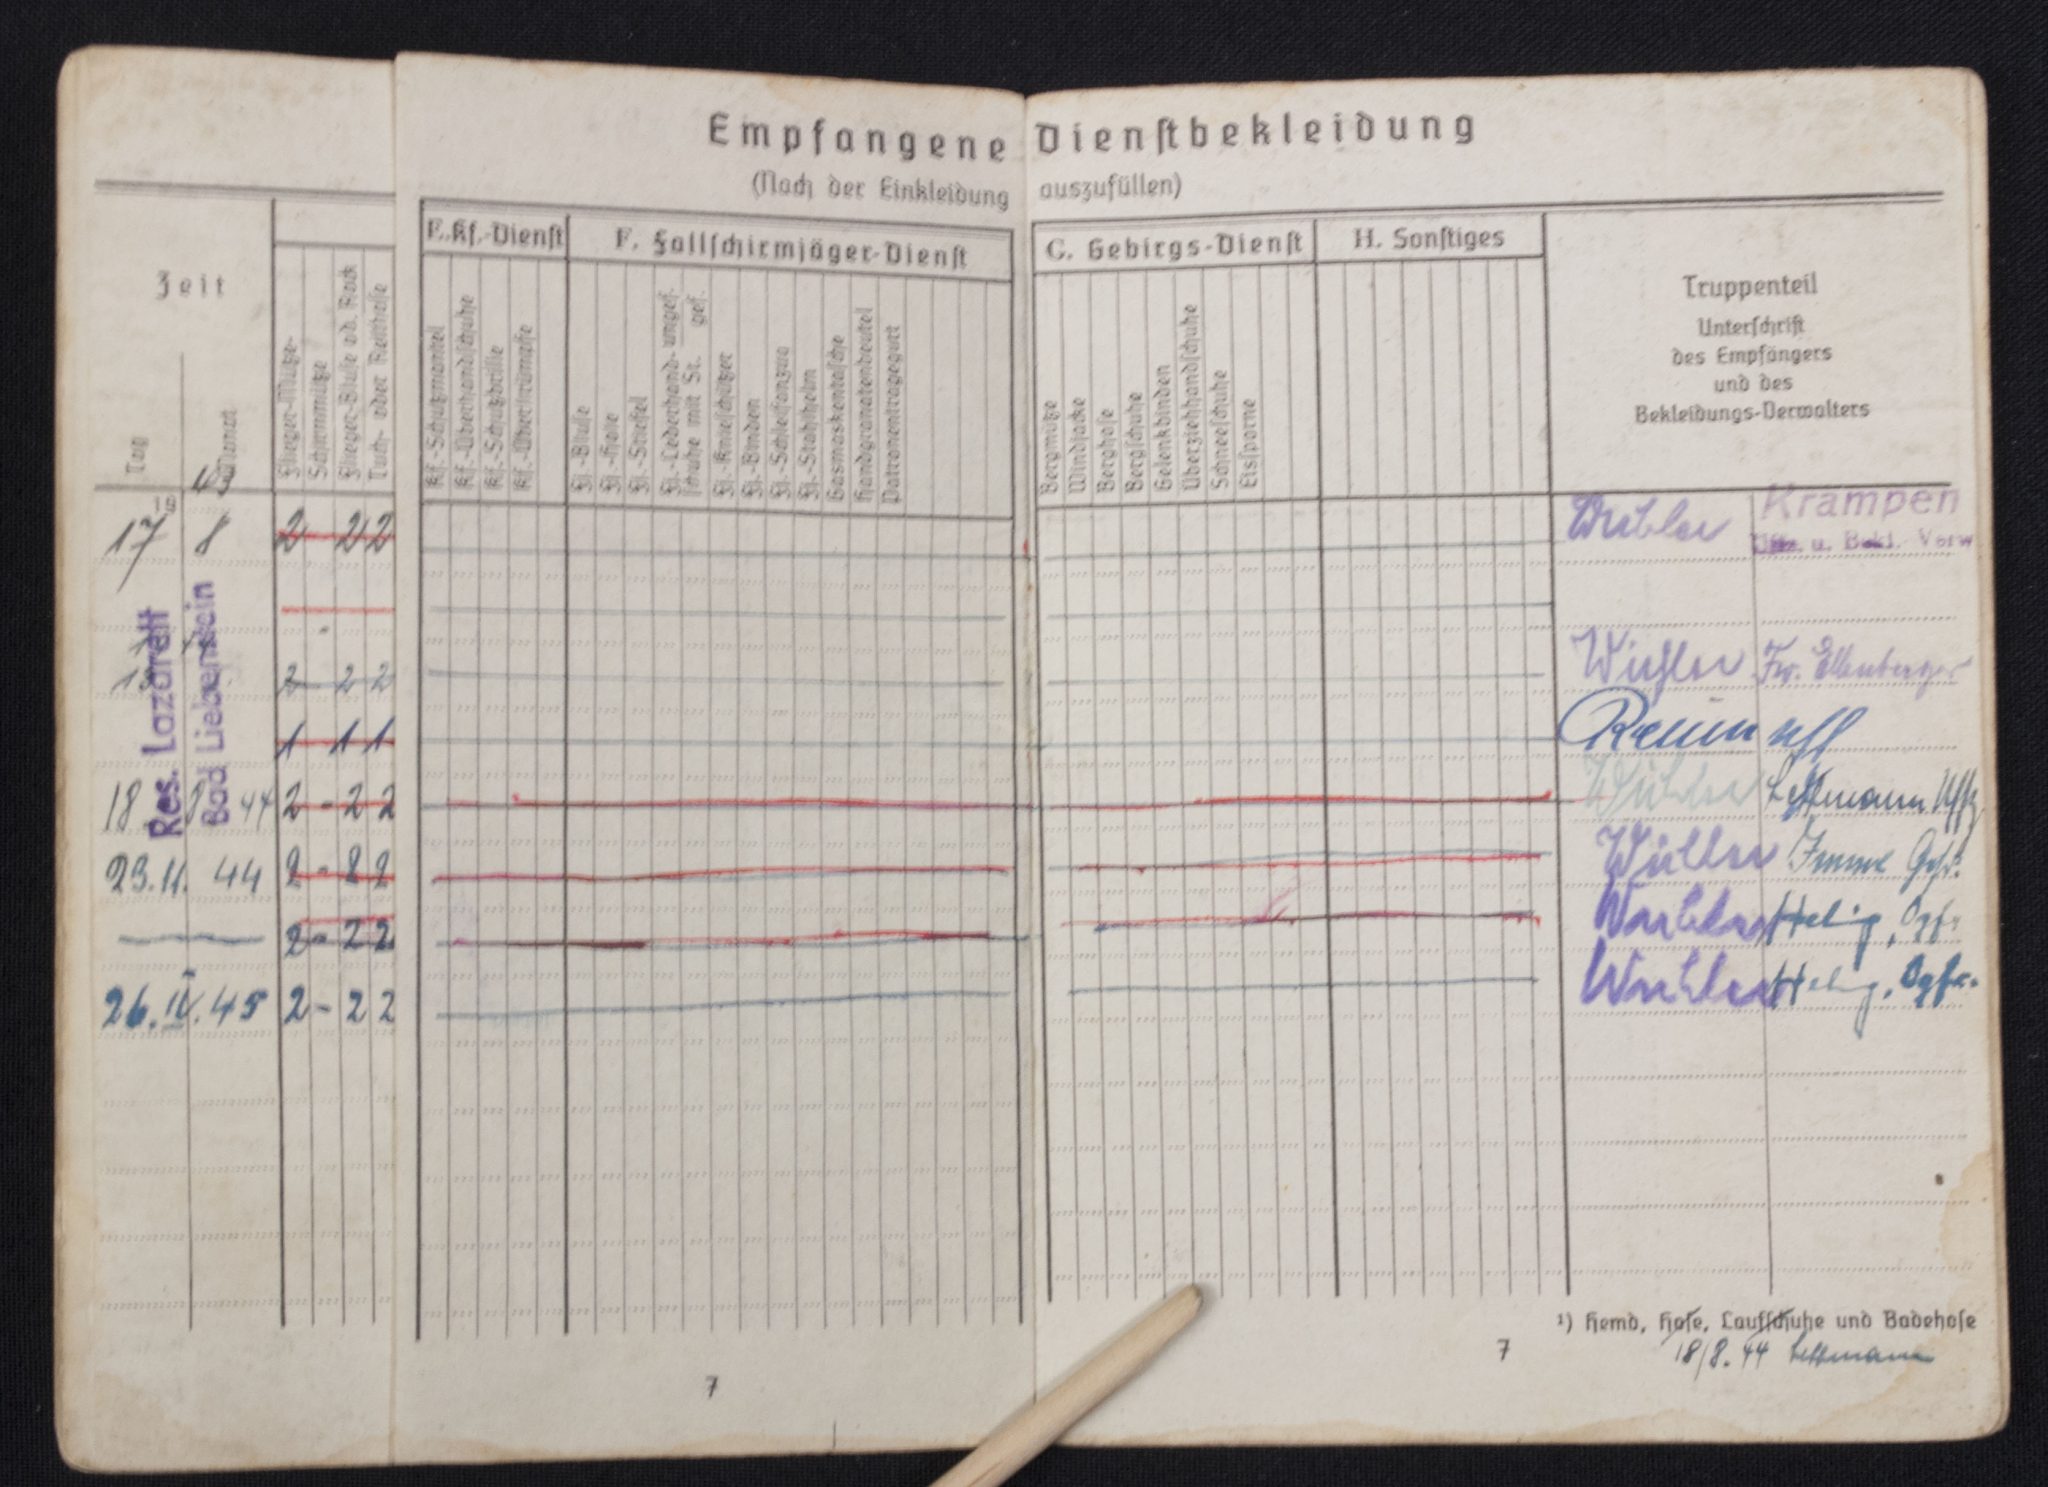 Empfangene Dienstbekleidung
(Nach der Einkleidung auszufüllen)
Zeit
Tag
Monat
Flieger-Mütze
Schirmmütze
Flieger-Bluse od. Rock
Tuch- oder Reithose
F. Kf.-Dienst
Kf.-Schutzmantel
Kf.-Überhandschuhe
Kf.-Schutzbrille
Kf.-Überstrümpfe
F. Fallschirmjäger-Dienst
Fl.-Bluse
Fl.-Hose
Fl.-Stiefel
Fl.-Lederhand- ungef.
schuhe mit St. gef.
Fl.-Knieschützer
Fl.-Binden
Fl.-Schleifanzug
Fl.-Stahlhelm
Gasmaskentasche
Handgranatenbeutel
Patronentragegurt
G. Gebirgs-Dienst
Bergmütze
Windjacke
Berghose
Bergschuhe
Gelenkbinden
Überziehhandschuhe
Schneeschuhe
Eissporne
H. Sonstiges
Truppenteil
Unterschrift
des Empfängers
und des
Bekleidungs-Verwalters
17 8 2 - 2 2 Krampen
Uffz. u. Bekl. Verw
Res. Lazarett
Bad Liebenstein
2 - 2 2 Fr. Ellenberger
1 - 1 1
18. 8 44 2 - 2 2 Lettmann Uffz
23.11. 44 2 - 2 2
2 - 2 2 Helig, Ogfr.
26. IV. 45 2 - 2 2 Helig, Ogfr.
¹) Hemd, Hose, Laufschuhe und Badehose
18/8. 44 Lettmann
7
7